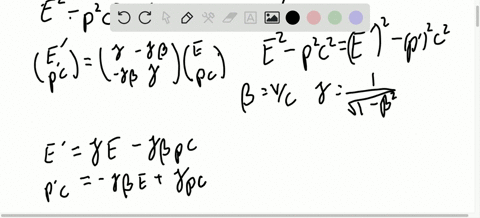 E² - p²c
(E' p'c) = (γ -γβ -γβ γ) (E pc)
E² - p²c² = (E')² - (p')²c²
β = v/c γ = 1/√(1-β²)
E' = γE - γβpc
p'c = -γβE + γpc